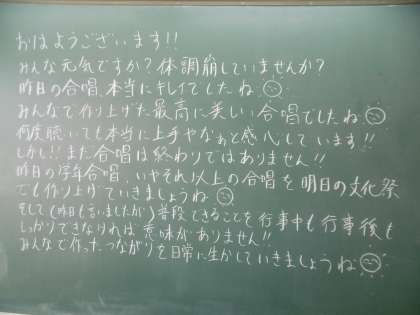 おはようございます!!
みんな元気ですか?体調崩していませんか?
昨日の合唱、本当にキレイでしたね
みんなで作り上げた最高に美しい合唱でしたね
何度聴いても本当に上手やなぁと感心しています!!
しかし!!まだ合唱は終わりではありません!!!
昨日の学年合唱、いやそれ以上の合唱を明日の文化祭
でも作り上げていきましょうね
そして(昨日も言いましたが)普段できることを行事中も行事後も
しっかりできなければ意味がありません!!
みんなで作ったつながりを日常に生かしていきましょうね